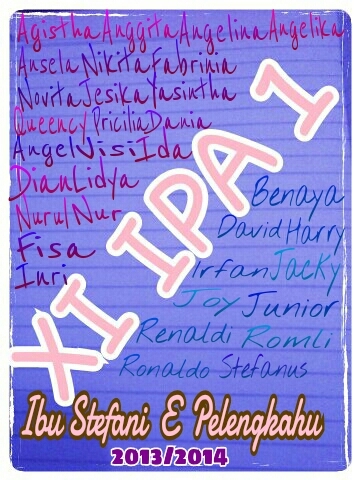 Agistha Anggita Angelina Angelika
Ansela Nikita Fabrinia
Novita Jesika Yasintha
Queency Pricilia Dania
Angel Visi Ida
Dian Lidya
Nurul Nur
Fisa
Inri
XI IPA 1
Benaya
David Harry
Irfan Jacky
Joy Junior
Renaldi Romli
Ronaldo Stefanus
Ibu Stefani E Pelengkahu
2013/2014